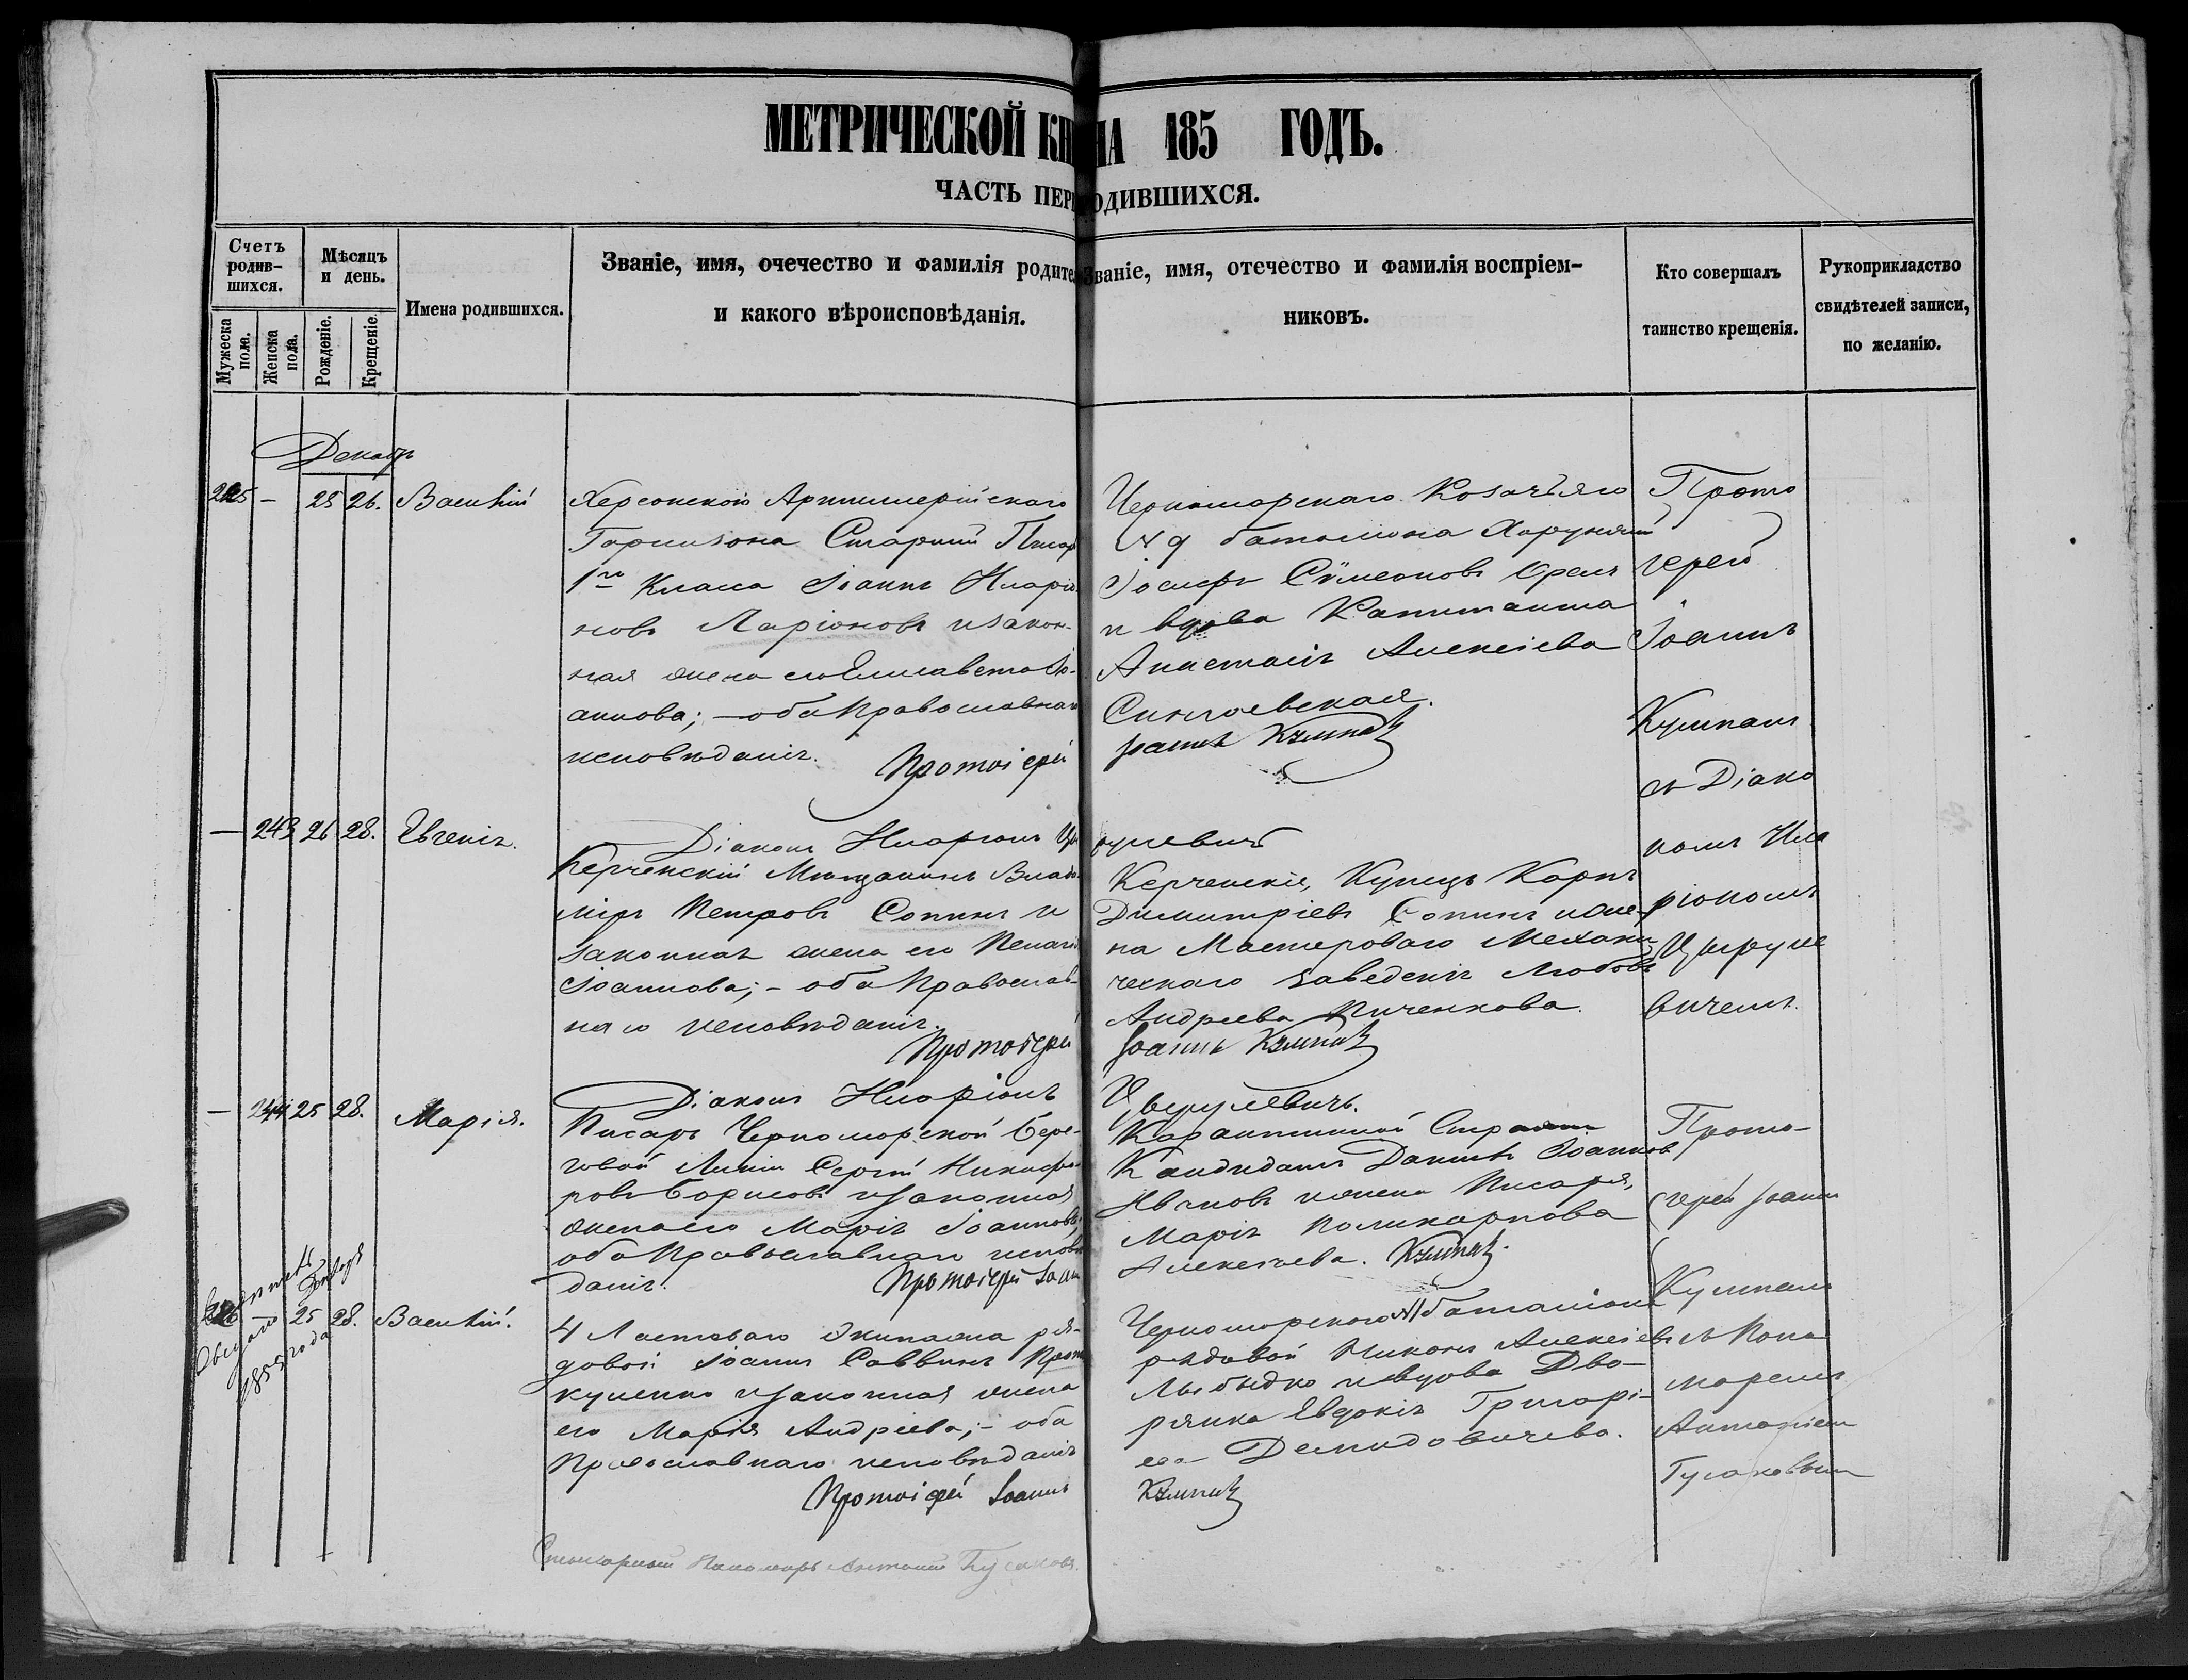 МЕТРИЧЕСКОЙ КН НА 185 ГОДЪ.
ЧАСТЬ ПЕР ОДИВШИХСЯ.
Счетъ родив-шихся.
Мужеска пола.
Женска пола.
Мѣсяцъ и день.
Рожденіе.
Крещеніе.
Имена родившихся.
Званіе, имя, очечество и фамилія родител
и какого вѣроисповѣданія.
Званіе, имя, отечество и фамилія воспріем-
никовъ.
Кто совершалъ
таинство крещенія.
Рукоприкладство
свидѣтелей записи,
по желанію.
Декабр
– 25 26. Василій
Херсонского Артиллерійскаго
Гарнизона Старшій Писар
1го Класса Іоаннъ Иларіо
новъ Ларіоновъ и закон-
ная жена его Елисавета Іо-
аннова; – оба Православнаго
исповѣданія.
Протоіерей
Черноморскаго Козачьяго
N 9 баталіона Хорунжій
Іосифъ Сѵмеоновъ
и вдова Капитанша
Анастасія Алексіева
Іоаннъ Кумпанъ
Прото
іерей
Іоаннъ
Кумпанъ
съ Діако
номъ Ила
ріономъ
Цыруле
вичемъ.
— 243 26 28. Евгенія.
Діаконъ Иларіонъ Цы рулевичъ
Керченскій Мѣщанинъ Влади
міръ Петровъ Сопинъ и
законная жена его Пелагія
Іоаннова; – оба Православ-
наго исповѣданія.
Протоіерей
Керченскіе, Купецъ Карпъ
Димитріевъ Сопинъ и же-
на Мастероваго Механи
ческаго заведенія Любовь
Андреева
Іоаннъ Кумпанъ
— 244 25 28. Марія.
Діаконъ Иларіонъ
Цырулевичъ.
Писарь Черноморской Бере-
говой Линіи Сергій Никифо
ровъ Борисовъ и законная
жена его Марія Іоаннова,
оба Православнаго исповѣ
данія.
Протоіерей Іоан
Карантинной Стражи
Кандидатъ Даніилъ Іоанновъ
Ивановъ и жена Писаря,
Марія Поликарпова
Алексѣева. Кумпанъ.
Прото-
іерей Іоанн
Кумпанъ
съ Поно
маремъ
Антоніем
Гусаковым
1855 года
– 25 28. Василій.
4 Ластоваго Экипажа ря-
довой Іоаннъ Саввинъ Про
куленко и законная жена
его Марія Андреева; – оба
Православнаго исповѣданія
Протоіерей Іоаннъ
Черноморскаго N баталіона
рядовой Никонъ Алексіевъ
Лыбыдко и вдова Дво-
рянка Евдокія Григорі-
ева Демидовичева.
Кумпанъ
Пономарь Антоній Гусаковъ.